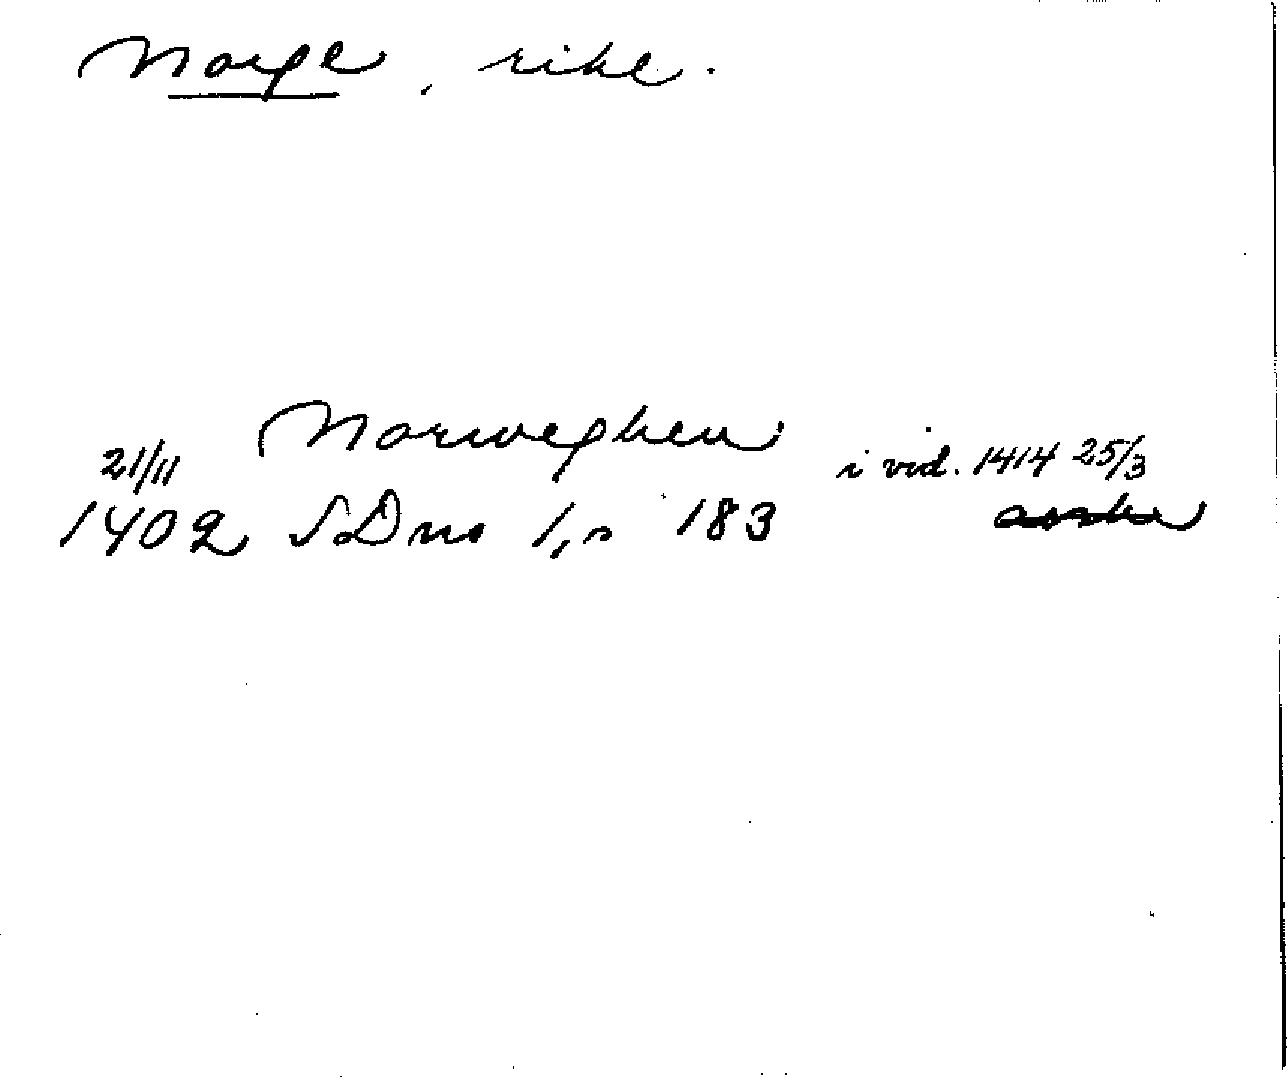 Norge, rike.
Norweghen
21/11 i vid. 1414 25/3
1402 SDns 1, s 183